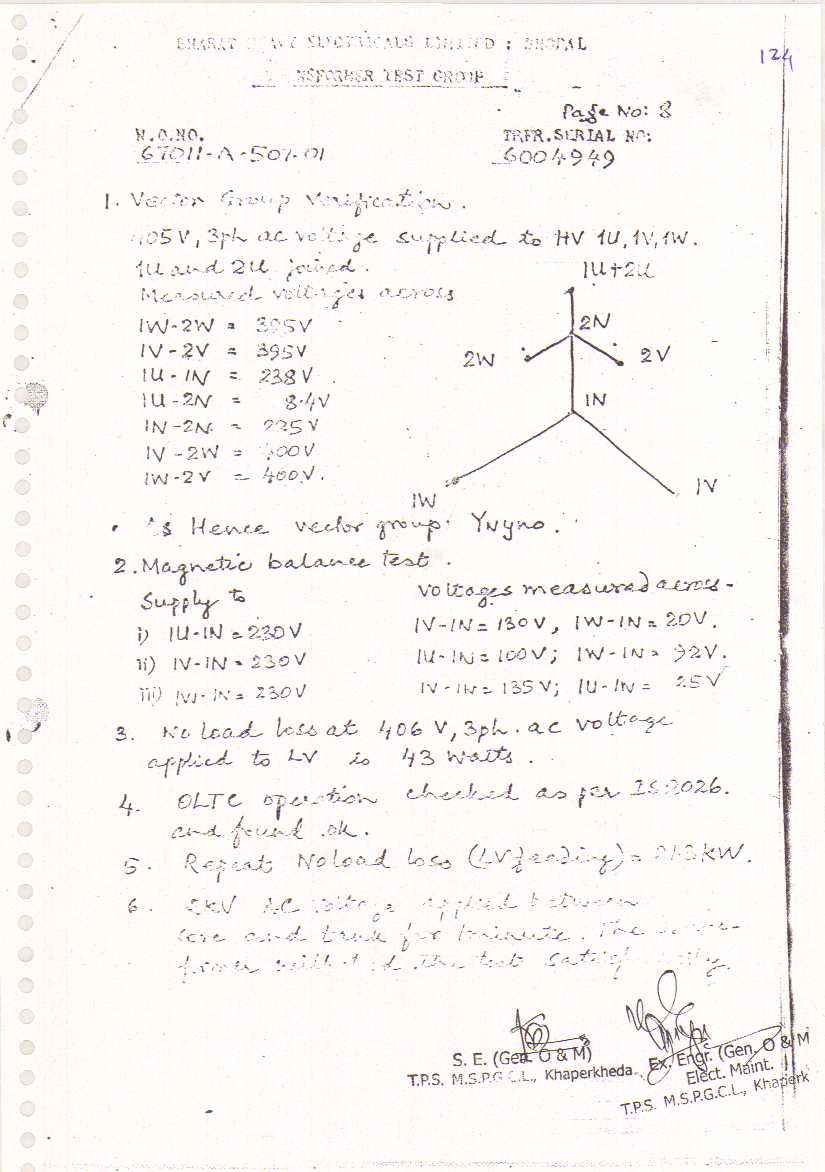 124
BHARAT HEAVY ELECTRICALS LIMITED : BHOPAL
TRANSFORMER TEST GROUP
Page No: 8
W.O.NO. TRFR.SERIAL NO:
67011-A-507-01 6004949
1. Vector Group Verification.
405V, 3ph ac voltage supplied to HV 1U,1V,1W.
1U and 2U joined.
Measured voltages across
1W-2W = 395V
1V-2V = 395V
1U-1N = 238V
1U-2N = 8.4V
1N-2N = 225V
1V-2W = 400V
1W-2V = 400V.
1U+2U
2N
2W 2V
1N
1W 1V
Hence vector group: YNyno.
2. Magnetic balance test.
Supply to Voltages measured across-
i) 1U-1N = 230V 1V-1N = 130V, 1W-1N = 20V.
ii) 1V-1N = 230V 1U-1N = 100V; 1W-1N = 92V.
iii) 1W-1N = 230V 1V-1N = 135V; 1U-1N = 25V
3. No load loss at 406 V, 3ph. ac voltage
applied to LV is 43 watts.
4. OLTC operation checked as per IS:2026.
and found ok.
5. Repeat Noload loss (LV feeding) = kW.
6. 2kV AC voltage applied between
core and tank for 1minute. The trans-
former withstood the test satisfactorily.
S. E. (Gen. O & M)
T.P.S. M.S.P.G.C.L., Khaperkheda.
Ex. Engr. (Gen. O & M
Elect. Maint.
T.P.S. M.S.P.G.C.L., Khaperk